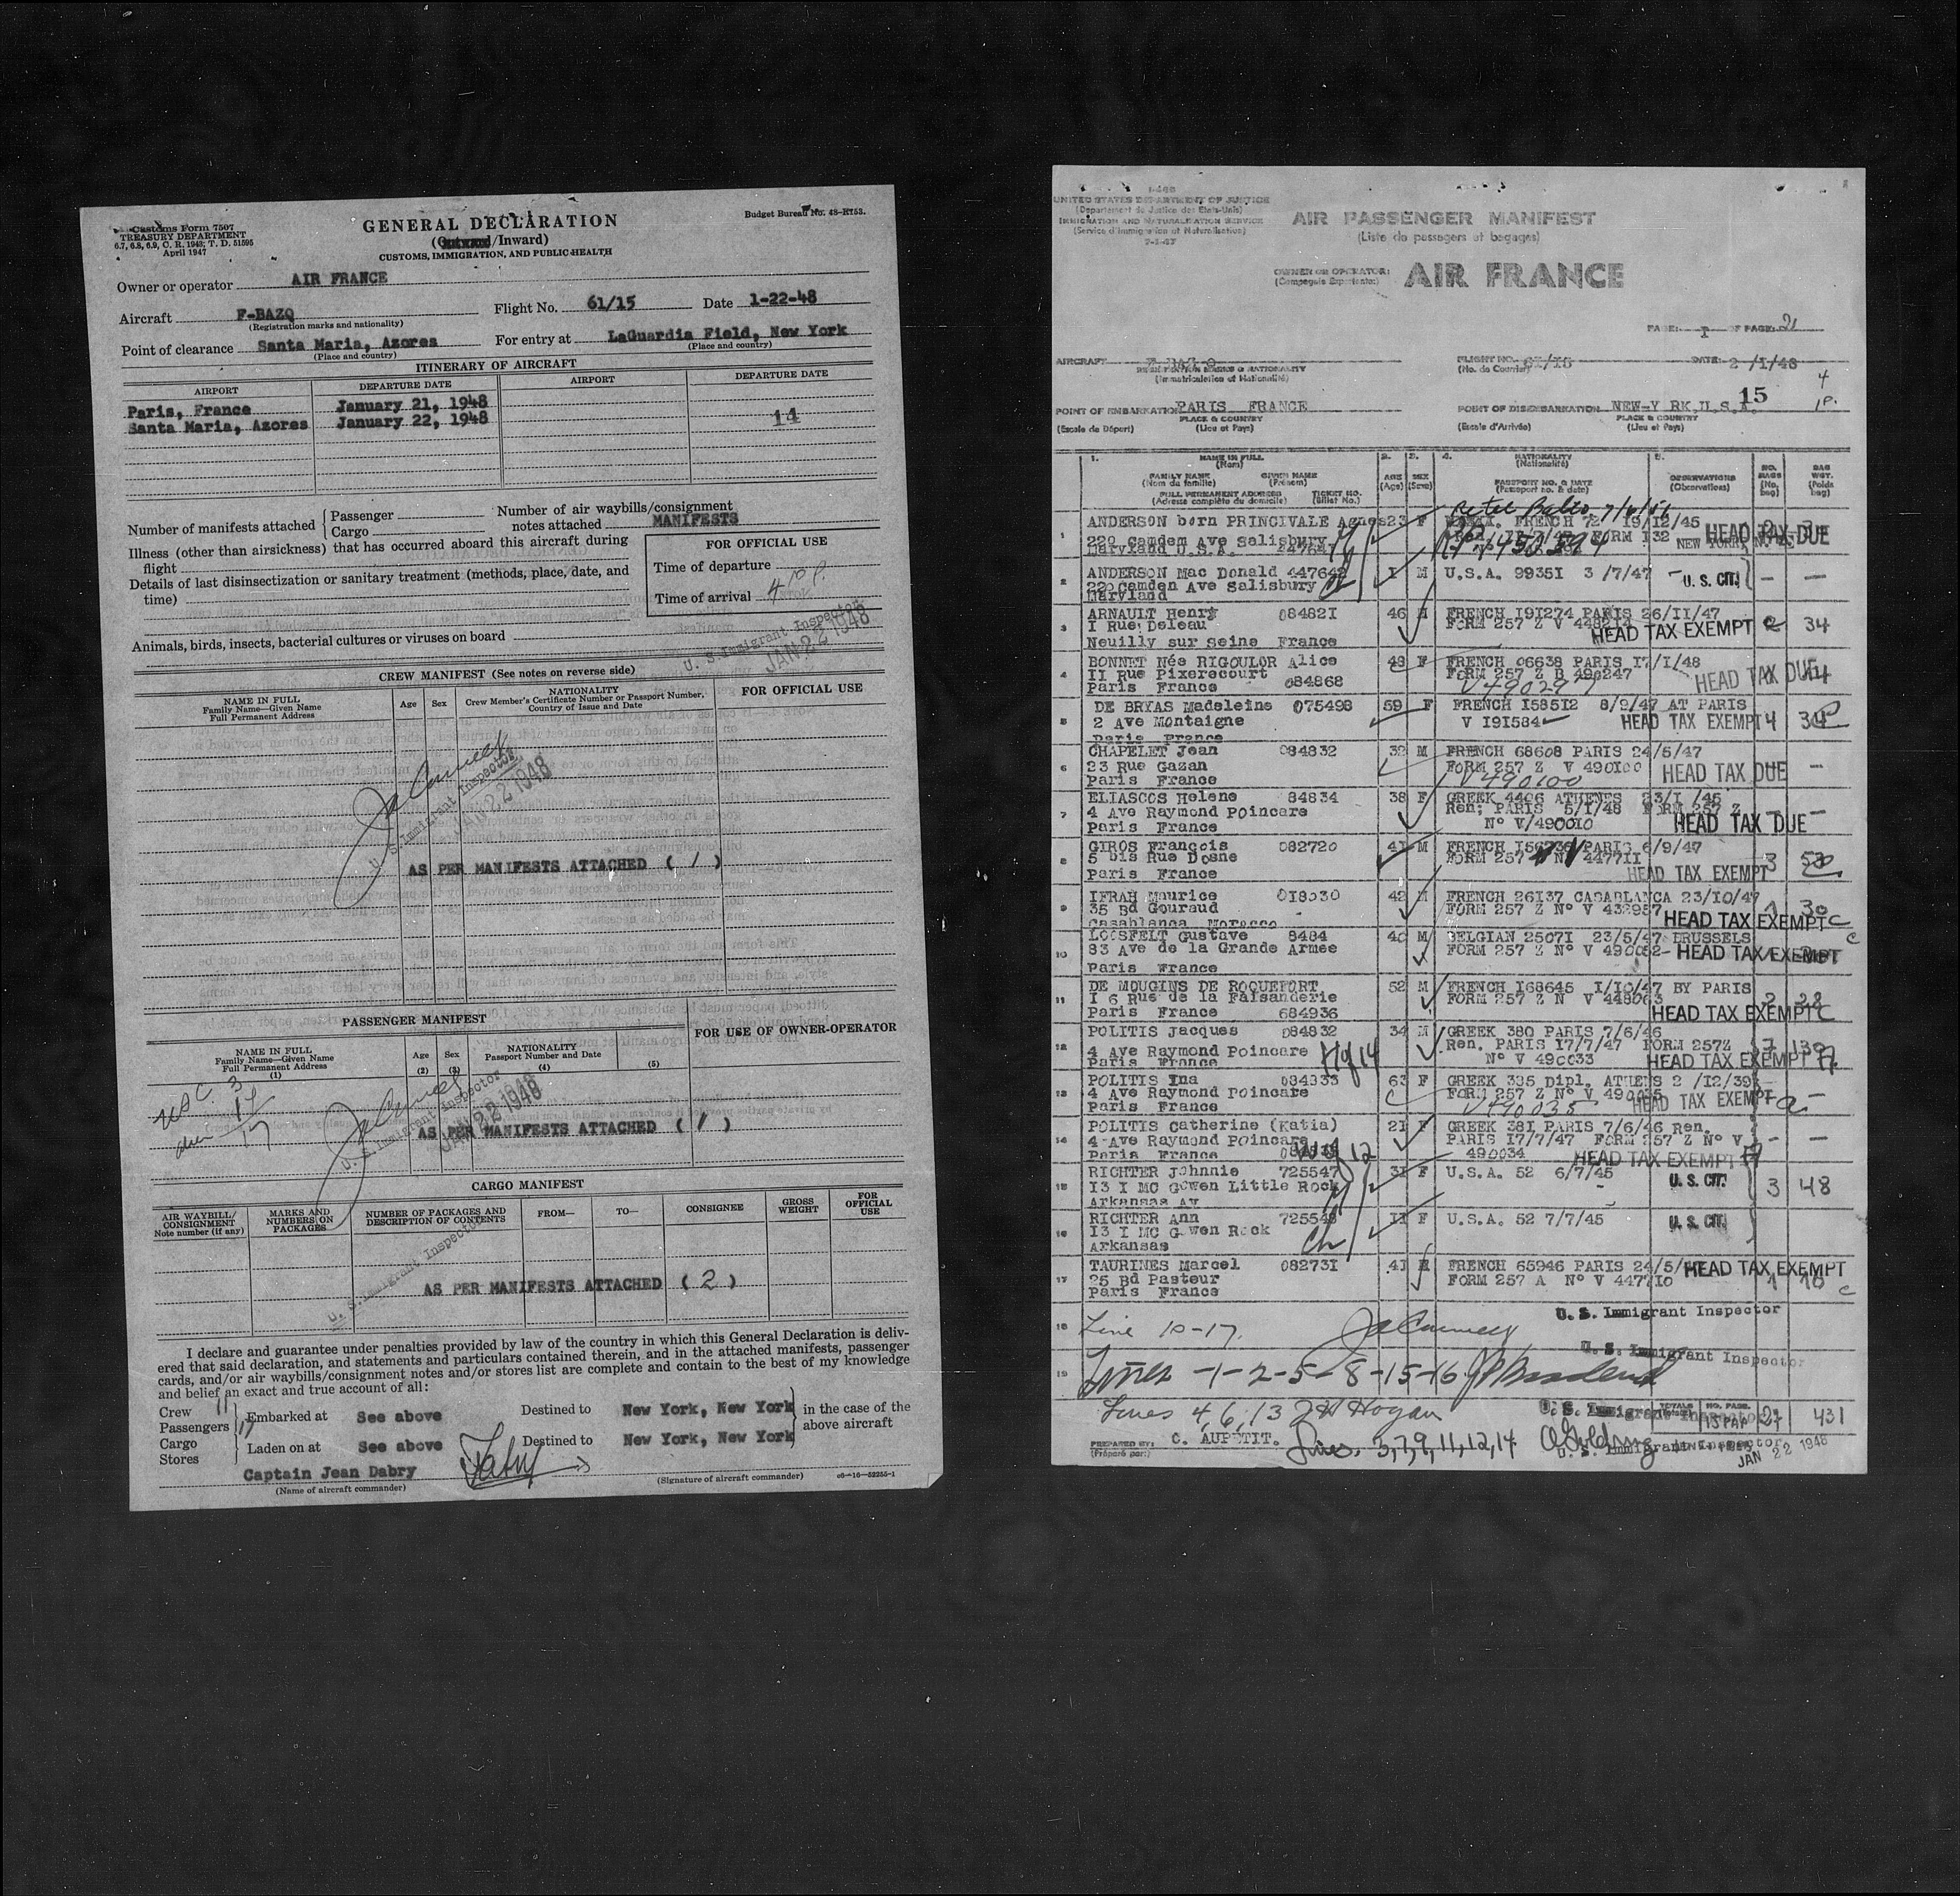 Customs Form 7507
TREASURY DEPARTMENT
6.7, 6.8, 6.9, C. R. 1943; T. D. 51595
April 1947
GENERAL DECLARATION
(/Inward)
CUSTOMS, IMMIGRATION, AND PUBLIC HEALTH
Budget Bureau No. 48-R153.
Owner or operator AIR FRANCE
Aircraft F-BAZQ Flight No. 61/15 Date 1-22-48
(Registration marks and nationality)
Point of clearance Santa Maria, Azores For entry at LaGuardia Field, New York
(Place and country) (Place and country)
ITINERARY OF AIRCRAFT
AIRPORT DEPARTURE DATE AIRPORT DEPARTURE DATE
Paris, France January 21, 1948
Santa Maria, Azores January 22, 1948 14
Number of manifests attached Passenger Number of air waybills/consignment
Cargo notes attached MANIFESTS
Illness (other than airsickness) that has occurred aboard this aircraft during
flight
Details of last disinsectization or sanitary treatment (methods, place, date, and
time)
FOR OFFICIAL USE
Time of departure
Time of arrival 4 10 P.
Animals, birds, insects, bacterial cultures or viruses on board
U. S. Immigrant Inspector
JAN 22 1948
CREW MANIFEST (See notes on reverse side)
NAME IN FULL
Family Name—Given Name
Full Permanent Address
Age Sex
NATIONALITY
Crew Member's Certificate Number or Passport Number,
Country of Issue and Date
FOR OFFICIAL USE
U. S. Immigrant Inspector
JAN 22 1948
AS PER MANIFESTS ATTACHED ( 1 )
PASSENGER MANIFEST
FOR USE OF OWNER-OPERATOR
NAME IN FULL
Family Name—Given Name
Full Permanent Address
(1)
Age
(2)
Sex
(3)
NATIONALITY
Passport Number and Date
(4)
(5)
USC 3
alien 14
17
U. S. Immigrant Inspector
JAN 22 1948
AS PER MANIFESTS ATTACHED ( 1 )
CARGO MANIFEST
AIR WAYBILL/
CONSIGNMENT
Note number (if any)
MARKS AND
NUMBERS ON
PACKAGES
NUMBER OF PACKAGES AND
DESCRIPTION OF CONTENTS
FROM—
TO—
CONSIGNEE
GROSS
WEIGHT
FOR
OFFICIAL
USE
U. S. Immigrant Inspector
AS PER MANIFESTS ATTACHED ( 2 )
I declare and guarantee under penalties provided by law of the country in which this General Declaration is deliv-
ered that said declaration, and statements and particulars contained therein, and in the attached manifests, passenger
cards, and/or air waybills/consignment notes and/or stores list are complete and contain to the best of my knowledge
and belief an exact and true account of all:
Crew 11
Passengers 17
Embarked at See above Destined to New York, New York in the case of the
above aircraft
Cargo
Stores
Laden on at See above Destined to New York, New York
Captain Jean Dabry
(Name of aircraft commander)
(Signature of aircraft commander)
c6—16—52255-1
I-466
UNITED STATES DEPARTMENT OF JUSTICE
(Departement de Justice des Etats-Unis)
IMMIGRATION AND NATURALIZATION SERVICE
(Service d'Immigration et Naturalisation)
AIR PASSENGER MANIFEST
(Liste de passagers et bagages)
OWNER OR OPERATOR:
(Compagnie Exploitante:)
AIR FRANCE
PAGE: I OF PAGE: 2
AIRCRAFT
(Immatriculation et Nationalité)
FLIGHT NO. 61/15
(No. de Courrier)
DATE: 2 /1/48
15
POINT OF EMBARKATION PARIS FRANCE
PLACE & COUNTRY
(Escale de Départ) (Lieu et Pays)
POINT OF DISEMBARKATION NEW-Y RK,U.S.A.
PLACE & COUNTRY
(Escale d'Arrivée) (Lieu et Pays)
1. NAME IN FULL
(Nom)
FAMILY NAME GIVEN NAME
(Nom du famille) (Prénom)
FULL PERMANENT ADDRESS TICKET NO.
(Adresse complète du domicile) (Billet No.)
2. AGE
(Age)
3. SEX
(Sexe)
4. NATIONALITY
(Nationalité)
PASSPORT NO. & DATE
(Passport no. & date)
5. OBSERVATIONS
(Observations)
NO.
BAGS
(No.
bag)
BAG
WGT.
(Poids
bag)
1 ANDERSON born PRINCIVALE Agnes 23 F FRENCH 19/12/45
220 Camdem Ave Salisbury FORM I32
Maryland U.S.A. HEAD TAX DUE
2 ANDERSON Mac Donald 447642 I M U.S.A. 9935I 3 /7/47 U. S. CIT.
220 Camden Ave Salisbury
Maryland
3 ARNAULT Henry 084821 46 M FRENCH I9I274 PARIS 26/II/47
I Rue Deleau FORM 257 Z V 448214 HEAD TAX EXEMPT 2 34
Neuilly sur Seine France
4 BONNET Née RIGOULOR Alice 48 F FRENCH 06638 PARIS I7/I/48
II Rue Pixerecourt FORM 257 Z B 490247
Paris France 084868 HEAD TAX DUE
5 DE BRYAS Madeleine 075498 59 F FRENCH I585I2 8/9/47 AT PARIS
2 Ave Montaigne V I9I584 HEAD TAX EXEMPT 4
Paris France
6 CHAPELET Jean 084832 32 M FRENCH 68608 PARIS 24/5/47
23 Rue Gazan FORM 257 Z V 490I00 HEAD TAX DUE
Paris France V490100
7 ELIASCOS Helene 84834 38 F GREEK 4406 ATHENES 23/I /45
4 Ave Raymond Poincare Ren; PARIS 5/I/48 FORM 257 Z
Paris France N° V/490010 HEAD TAX DUE
8 GIROS François 082720 41 M FRENCH PARIS 6/9/47
5 bis Rue Dosne FORM 257 4477II
Paris France HEAD TAX EXEMPT 3
9 IFRAH Maurice 0I8030 42 M FRENCH 26I37 CASABLANCA 23/I0/47
35 Bd Gouraud FORM 257 Z N° V 432957 1 30
Casablanca Morocco HEAD TAX EXEMPT C
10 LOOSFELT Gustave 8484 40 M BELGIAN 2507I 23/5/47 BRUSSELS C
83 Ave de la Grande Armee FORM 257 Z N° V 490052 HEAD TAX EXEMPT
Paris France
11 DE MOUGINS DE ROQUEFORT 52 M FRENCH I68645 I/I0/47 BY PARIS
I 6 Rue de la Faisanderie FORM 257 Z N V 448063 2 28
Paris France 684936 HEAD TAX EXEMPT C
12 POLITIS Jacques 084832 34 M GREEK 380 PARIS 7/6/46
4 Ave Raymond Poincare Ren. PARIS I7/7/47 FORM 257Z 7
Paris France N° V 490033 HEAD TAX EXEMPT
13 POLITIS Ina 084833 63 F GREEK 395 Dipl. ATHENS 2 /I2/39
4 Ave Raymond Poincare FORM 257 Z V 490035
Paris France V490035 HEAD TAX EXEMPT
14 POLITIS Catherine (Katia) 2I F GREEK 38I PARIS 7/6/46 Ren.
4 Ave Raymond Poincare PARIS I7/7/47 FORM 257 Z N° V
Paris France 490034 HEAD TAX EXEMPT
15 RICHTER Johnnie 725547 3I F U.S.A. 52 6/7/45 U. S. CIT. 3 48
I3 I MC Gowen Little Rock
Arkansas Av
16 RICHTER Ann 725548 II F U.S.A. 52 7/7/45 U. S. CIT.
I3 I MC G wen Rock
Arkansas
17 TAURINES Marcel 08273I 41 M FRENCH 65946 PARIS 24/5/ HEAD TAX EXEMPT
25 Bd Pasteur FORM 257 A N° V 447710 1 10 C
Paris France
U. S. Immigrant Inspector
18 Line 10-17.
U. S. Immigrant Inspector
19 Lines -1-2-5-8-15-16
Lines 4,6,13 Hogan
TOTALS NO. PASS. 431
PREPARED BY: C. AUPETIT. Lines. 3,7,9,11,12,14
(Préparé par:)
JAN 22 1948